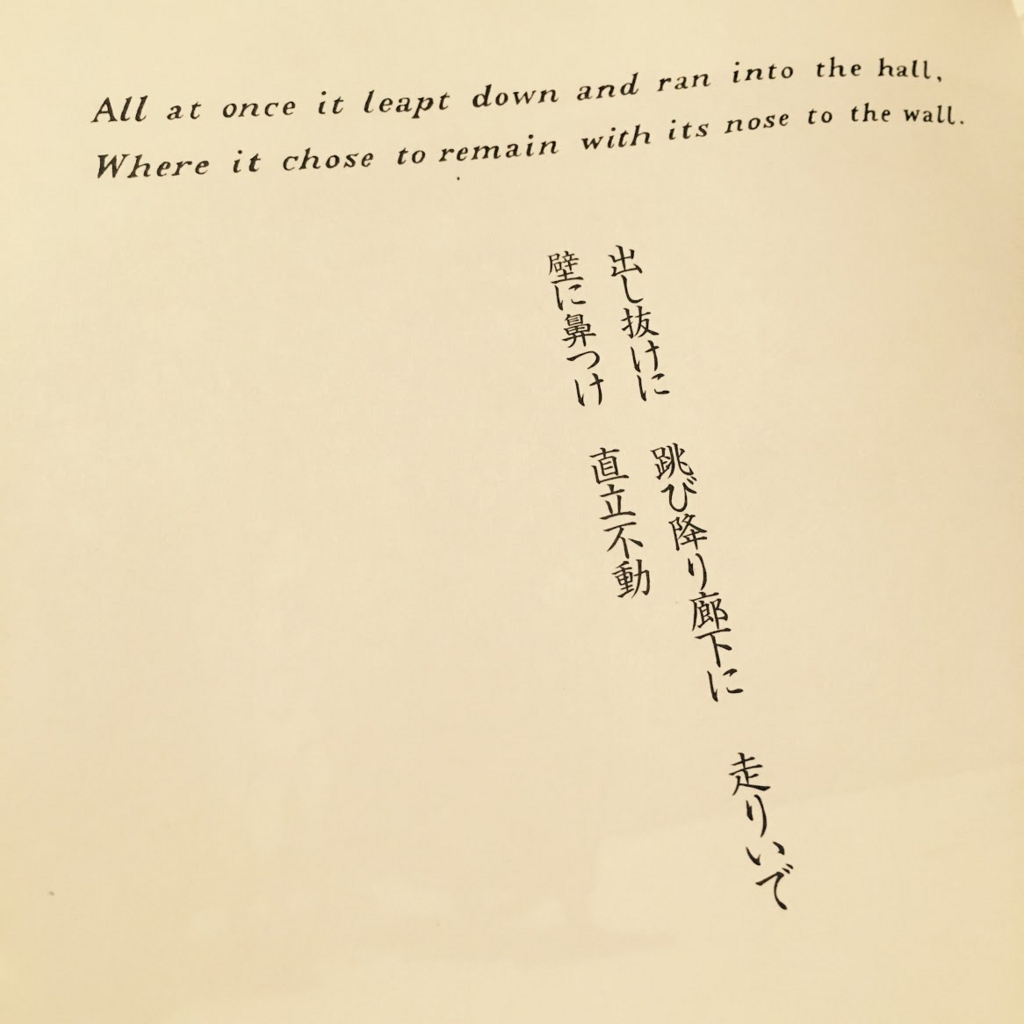 All at once it leapt down and ran into the hall,
Where it chose to remain with its nose to the wall.
出し抜けに 跳び降り廊下に 走りいで
壁に鼻つけ 直立不動